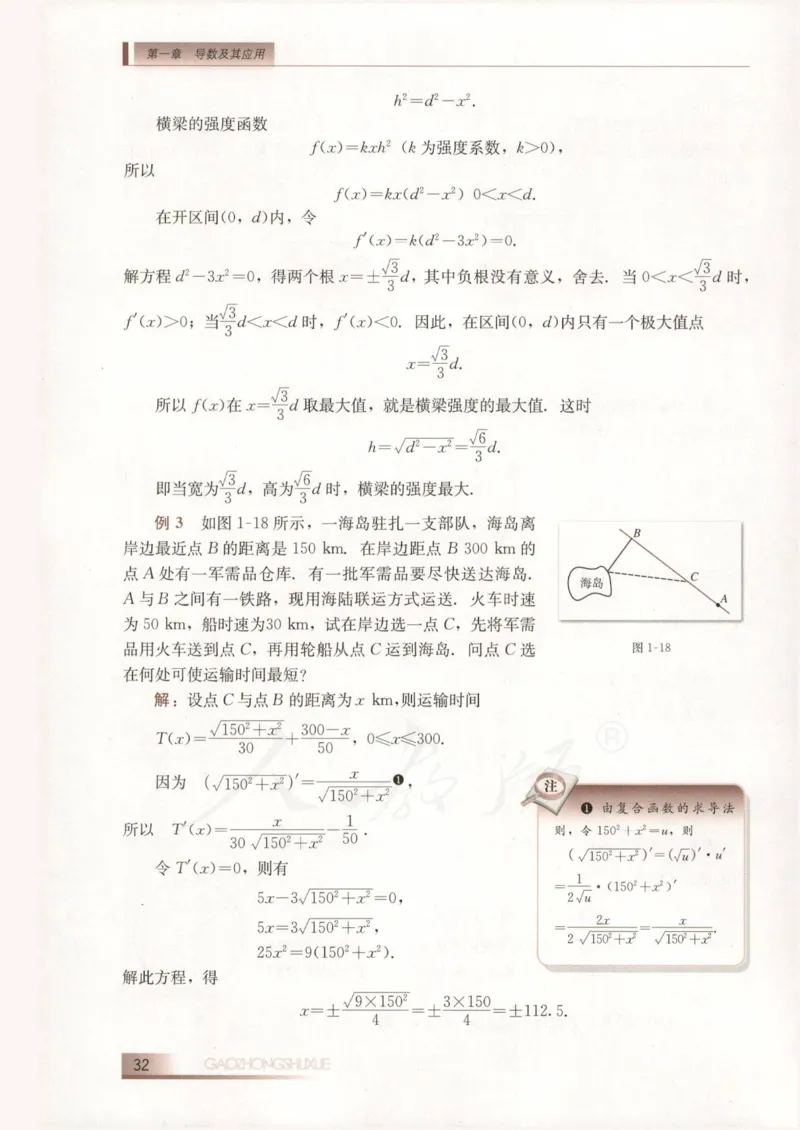 第一章 导数及其应用
h²=d²-x².
横梁的强度函数
f(x)=kxh² (k 为强度系数, k>0),
所以
f(x)=kx(d²-x²) 0<x<d.
在开区间(0, d)内, 令
f′(x)=k(d²-3x²)=0.
解方程 d²-3x²=0, 得两个根 x=±√3/3 d, 其中负根没有意义, 舍去. 当 0<x<√3/3 d 时,
f′(x)>0; 当√3/3 d<x<d 时, f′(x)<0. 因此, 在区间(0, d)内只有一个极大值点
x=√3/3 d.
所以 f(x)在 x=√3/3 d 取最大值, 就是横梁强度的最大值. 这时
h=√(d²-x²)=√6/3 d.
即当宽为√3/3 d, 高为√6/3 d 时, 横梁的强度最大.
例 3 如图 1-18 所示, 一海岛驻扎一支部队, 海岛离
岸边最近点 B 的距离是 150 km. 在岸边距点 B 300 km 的
点 A 处有一军需品仓库. 有一批军需品要尽快送达海岛.
A 与 B 之间有一铁路, 现用海陆联运方式运送. 火车时速
为 50 km, 船时速为30 km, 试在岸边选一点 C, 先将军需
品用火车送到点 C, 再用轮船从点 C 运到海岛. 问点 C 选
在何处可使运输时间最短?
海岛
B
C
A
图 1-18
解: 设点 C 与点 B 的距离为 x km,则运输时间
T(x)=√(150²+x²)/30+(300-x)/50, 0≤x≤300.
因为 (√(150²+x²))′=x/√(150²+x²)❶,
所以 T′(x)=x/(30√(150²+x²))-1/50.
令 T′(x)=0, 则有
5x-3√(150²+x²)=0,
5x=3√(150²+x²),
25x²=9(150²+x²).
解此方程, 得
x=±√(9×150²)/4=±(3×150)/4=±112.5.
注
❶ 由复合函数的求导法
则, 令 150²+x²=u, 则
(√(150²+x²))′=(√u)′·u′
=1/(2√u)·(150²+x²)′
=2x/(2√(150²+x²))=x/√(150²+x²).
人教版®
32 GAOZHONGSHUXUE